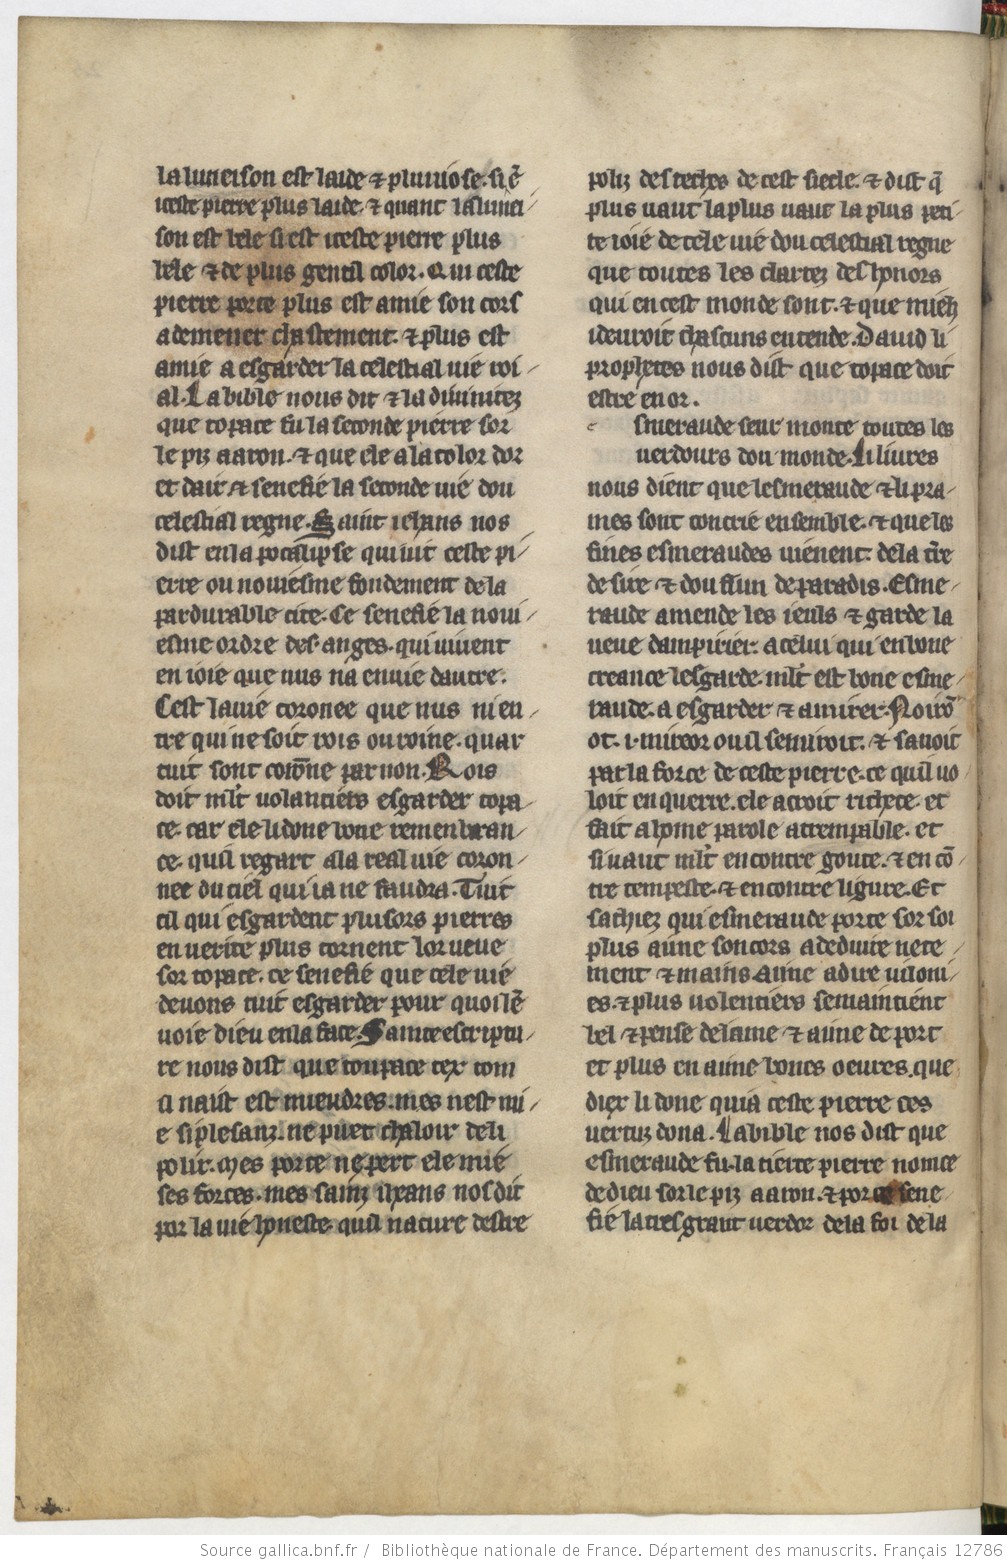 la luneison est laide ⁊ pluuiose. si ẽ
iceste pierre plus laide. ⁊ quant la lunei-
son est bele si est iceste pierre plus
bele ⁊ de plus gentil color. Qui ceste
pierre porte plus est amie son cors
a demener chastement. ⁊ plus est
amie a esgarder la celestial uie roi-
al. La bible nous dit ⁊ la diuinitez
que topace fu la seconde pierre sor
le piz aaron. ⁊ que ele a la color dor
et dair ⁊ senefie la seconde uie dou
celestial regne. Saint iehans nos
dist en la pocalipse qui uit ceste pi-
erre ou nouiesme fondement de la
pardurable cite. Ce senefie la noui-
esme ordre des anges. qui uiuent
en ioie que nus na enuie dautre.
Cest la uie coronee que nus ni en-
tre qui ne soit rois ou roine. quar
tuit sont corõne par non. Rois
doit ml't uolantiers esgarder topa-
ce. car ele li done bone remenbran-
ce. quil regart a la real uie coron-
nee du ciel qui ia ne faudra. Tuit
cil qui esgardent plusors pierres
en uerite plus tornent lor ueue
sor topace. ce senefie que cele uie
deuons tuit esgarder pour quoi lẽ
uoie dieu en la face. Sainte escriptu-
re nous dist que toupace rex tom
a naist est mieudres. mes nest mi-
e si plesanz. ne puet chaloir de li
polir. Mes porce ne pert ele mie
ses forces. mes sainz iehans nos dit
por la uie honeste. quil nature destre
poliz des teches de cest siecle. ⁊ dist q̃
plus uaut la plus uaut la plus peti-
te ioie de cele uie dou celestial regne
que toutes les clartez des honors
qui en cest monde sont. ⁊ que miez
i deuroit chascuns entendre. Dauid li
prophetes nous dist que topace doit
estre en or.
e smeraude seur monte toutes les
uerdours dou monde. Li liures
nous dient que lesmeraude ⁊ li pra-
mes sont concrie ensemble. ⁊ que les
fines esmeraudes uienent. de la tr̃e
de sire ⁊ dou flun de paradis. Esme-
raude amende les ieuls ⁊ garde la
ueue dampirier. a celui qui en bone
creance lesgarde. ml't est bone esme-
raude. a esgarder ⁊ a mirer. Noirõ
ot .i. mireor ou il se miroit. ⁊ sauoit
par la force de ceste pierre. ce quil uo
loit enquerre. ele acroit richece. et
fait a home parole atempable. et
si uaut ml't encontre goute. ⁊ en cõ-
tre tempeste. ⁊ encontre ligure. Et
sachiez qui esmeraude porte sor soi
plus aime son cors a deduire nete-
ment ⁊ mains aime a dire uiloni-
es. ⁊ plus uolentiers se maintient
bel ⁊ pense de lame ⁊ aime de port
et plus en aime bones oeures. que
diex li done qui a ceste pierre ces
uertuz dona. La bible nos dist que
esmeraude fu la tierce pierre nomee
de dieu sor le piz aaron. ⁊ por ce sene-
fie la tres grant uerdor de la foi de la
Source gallica.bnf.fr / Bibliothèque nationale de France. Département des manuscrits. Français 12786